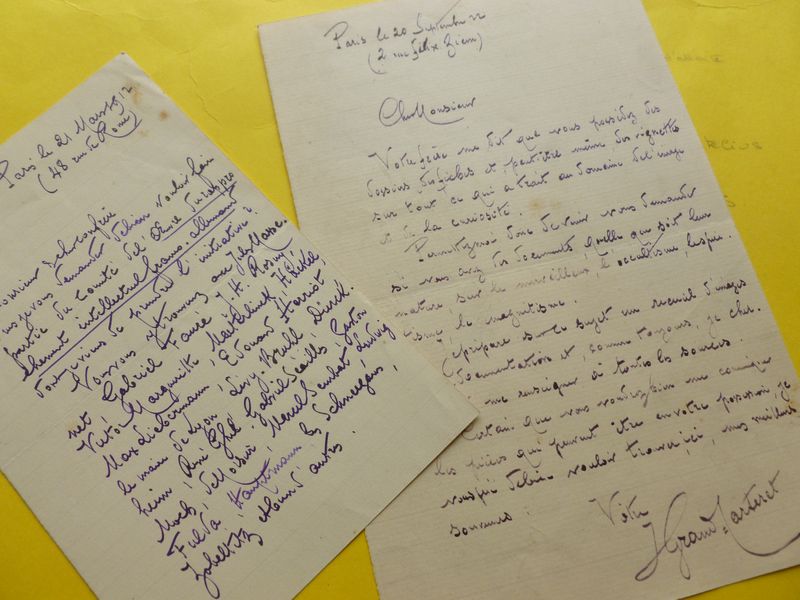 Paris le 21 Mars 1912
(48 rue de Rome)
Monsieur et cher confrère
puis-je vous demander de bien vouloir faire
partie du Comité de l'Œuvre du rappro
chement intellectuel franco-allemand
dont je viens de prendre l'initiative?
Vous vous y trouverez avec Jules Masse
net, Gabriel Fauré, J. H. Rosny,
Victor Margueritte, Maeterlinck, Häckel,
Max Liebermann, Edouard Herriot,
le maire de Lyon, Lévy-Bruhl, Durck
heim, René Ghil, Gabriel Séailles, Gaston
Moch, de Molinari, Marcel Sembat, Ludwig
Fulda, Hauptmann, les Schneegans,
Zobeltitz et bien d'autres.
Paris le 20 Septembre 22
(2 rue Félix Ziem)
Cher Monsieur
Votre frère me dit que vous possédez des
dossiers d'affiches et peut-être même des vignettes
sur tout ce qui a trait au domaine de l'image
et de la curiosité.
Permettez-moi donc de venir vous demander
si vous avez des documents, quelle que soit leur
nature, sur le merveilleux, l'occultisme, le spiri-
tisme, le magnétisme.
Je prépare sur ce sujet un recueil d'images
documentation et, comme toujours, je cher
à me renseigner à toutes les sources.
Certain que vous voudrez bien me communiquer
les pièces qui peuvent être en votre possession je
vous prie de bien vouloir trouver, ici, mes meilleurs
souvenirs.
Vôtre
J Grand-Carteret